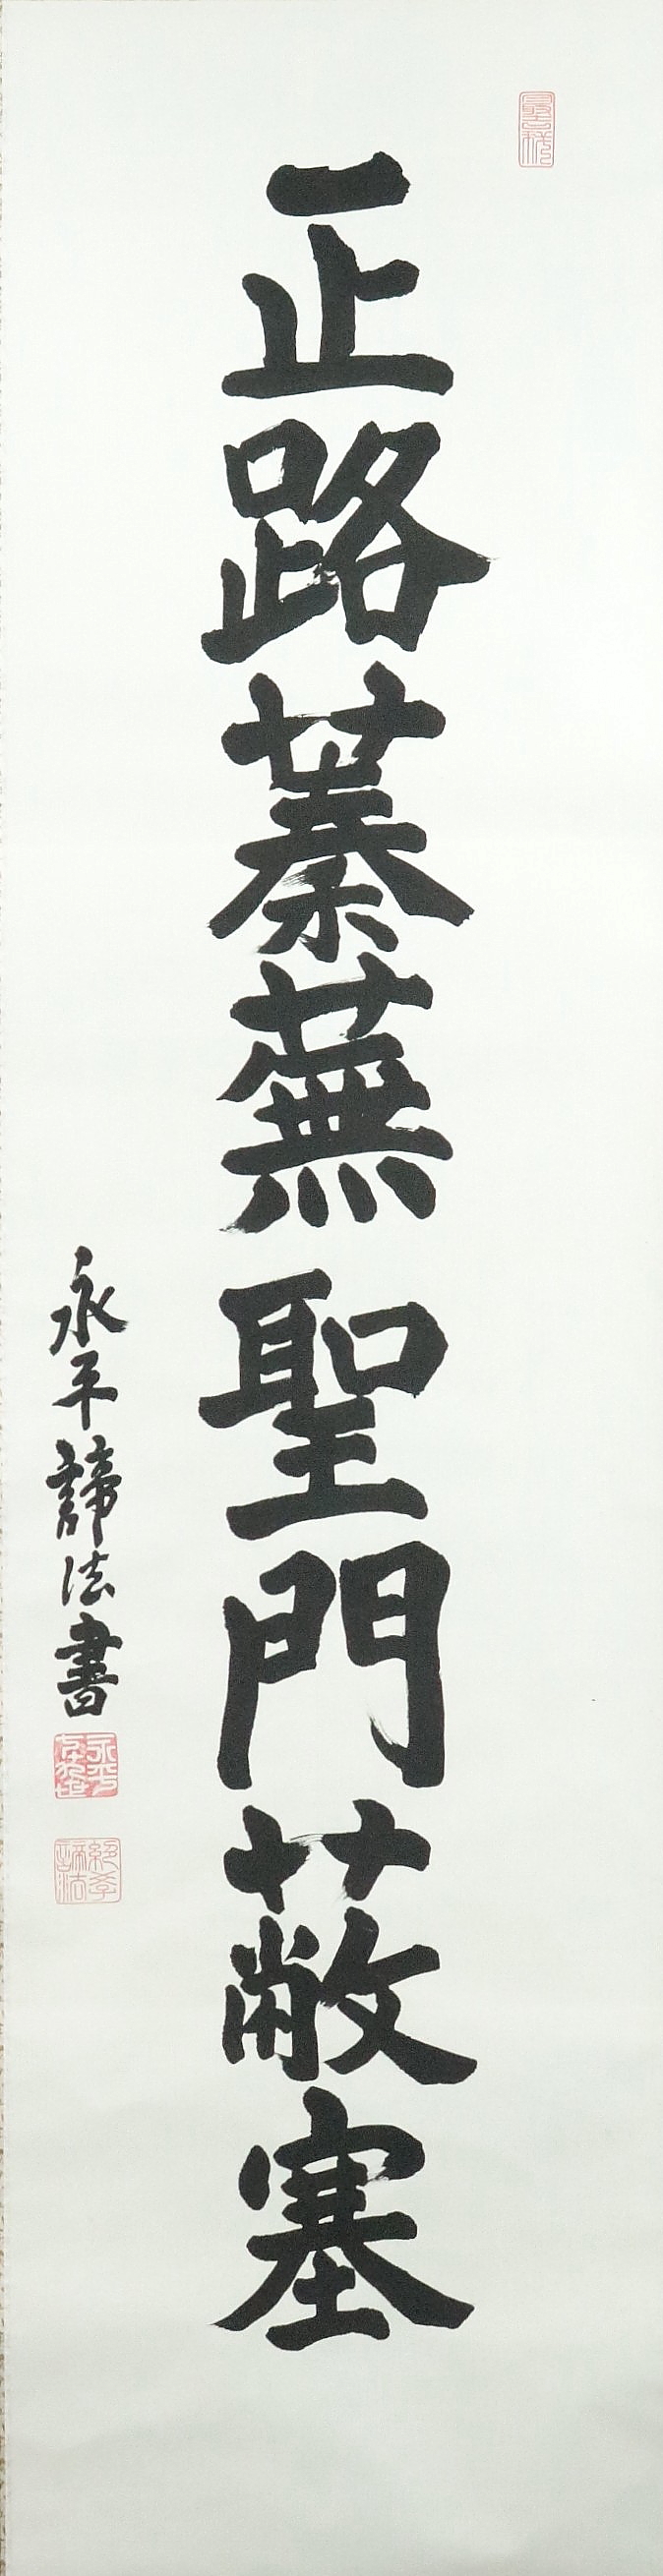 正路蓁蕪聖門蔽塞
永平諦法書